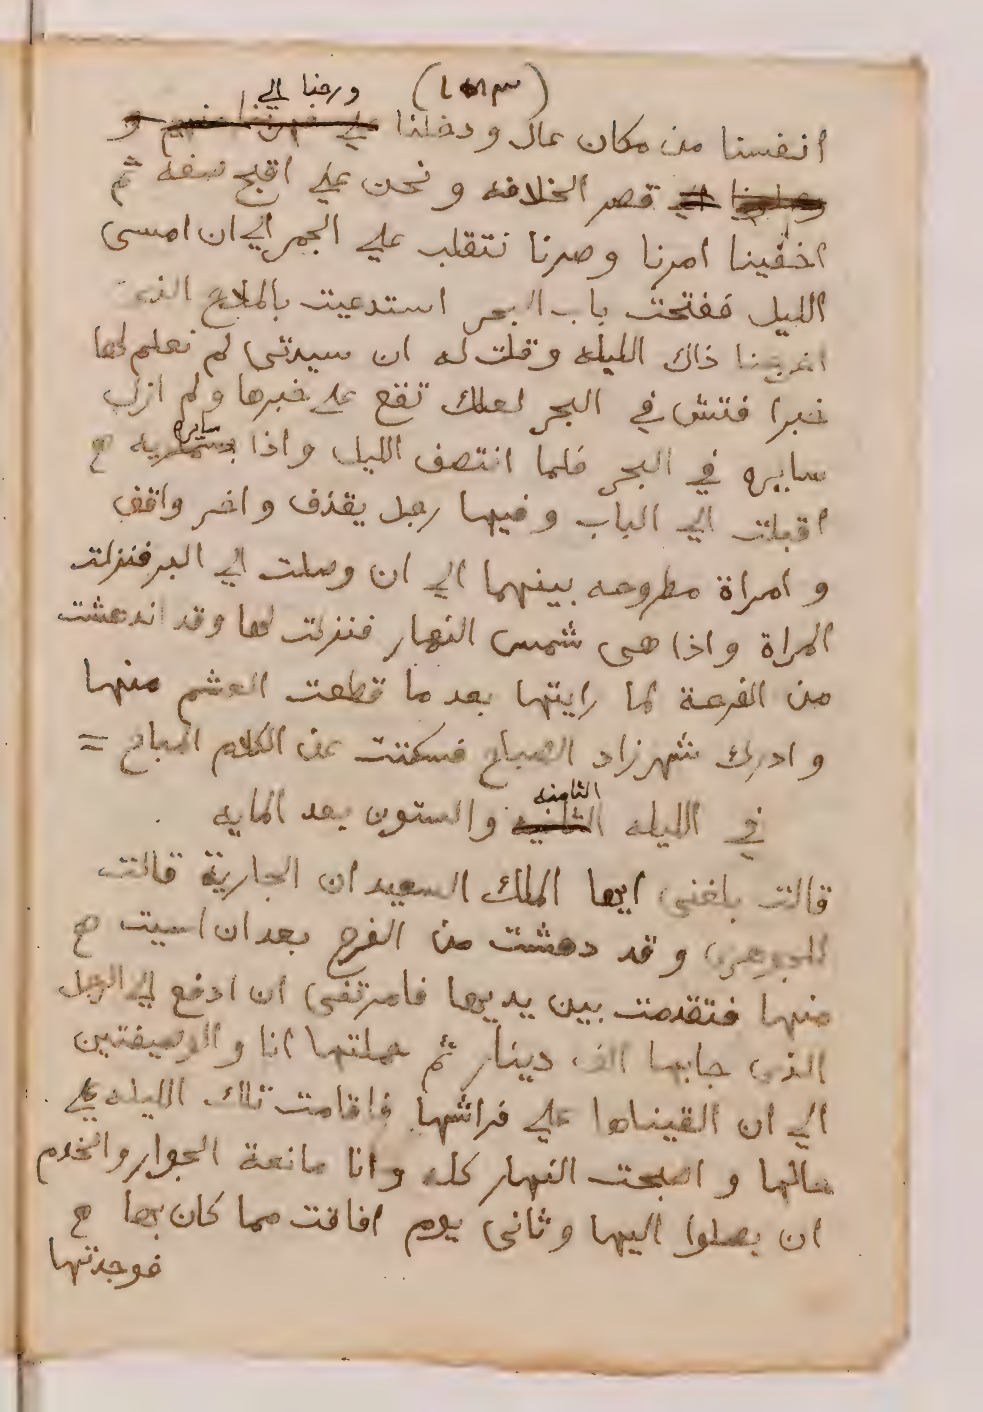 ورحنا الي
انفسنا من مكان عال ودخلنا
قصر الخلافه ونحن علي اقبح صفه ثم
اخفينا امرنا وصرنا نتقلب علي الجمر الي ان امسى
الليل ففتحت باب البحر استدعيت بالملاح الذي
اخرجنا ذاك الليله وقلت له ان سيدتي لم نعلم لها
خبرا فتش في البحر لعلك تقع علي خبرها ولم ازل
سايره في البحر فلما انتصف الليل واذا
اقبلت الي الباب وفيها رجل يقذف واخر واقف
و امراة مطروحه بينهما الي ان وصلت الي البر فنزلت
المراة واذا هى شمس النهار فنزلت لها وقد اندهشت
من الفرحة لما رايتها بعد ما قطعت العشم منها
و ادرك شهرزاد الصباح فسكتت عن الكلام المباح =
في الليله الثامنه والستون بعد المايه
قالت بلغنى ايها الملك السعيد ان الجارية قالت
للجوهرى وقد دهشت من الفرح بعد ان اسيت ح
منها فتقدمت بين يديها فامرتنى ان ادفع الي الرجل
الذى جابها الف دينار ثم حملتها انا والوصيفتين
الي ان القيناها علي فراشها فاقامت تلك الليله علي
حالها و اصبحت النهار كله وانا مانعة الجوار والخدم
ان يصلوا اليها وثانى يوم افاقت مما كان بها ح
فوجدتها